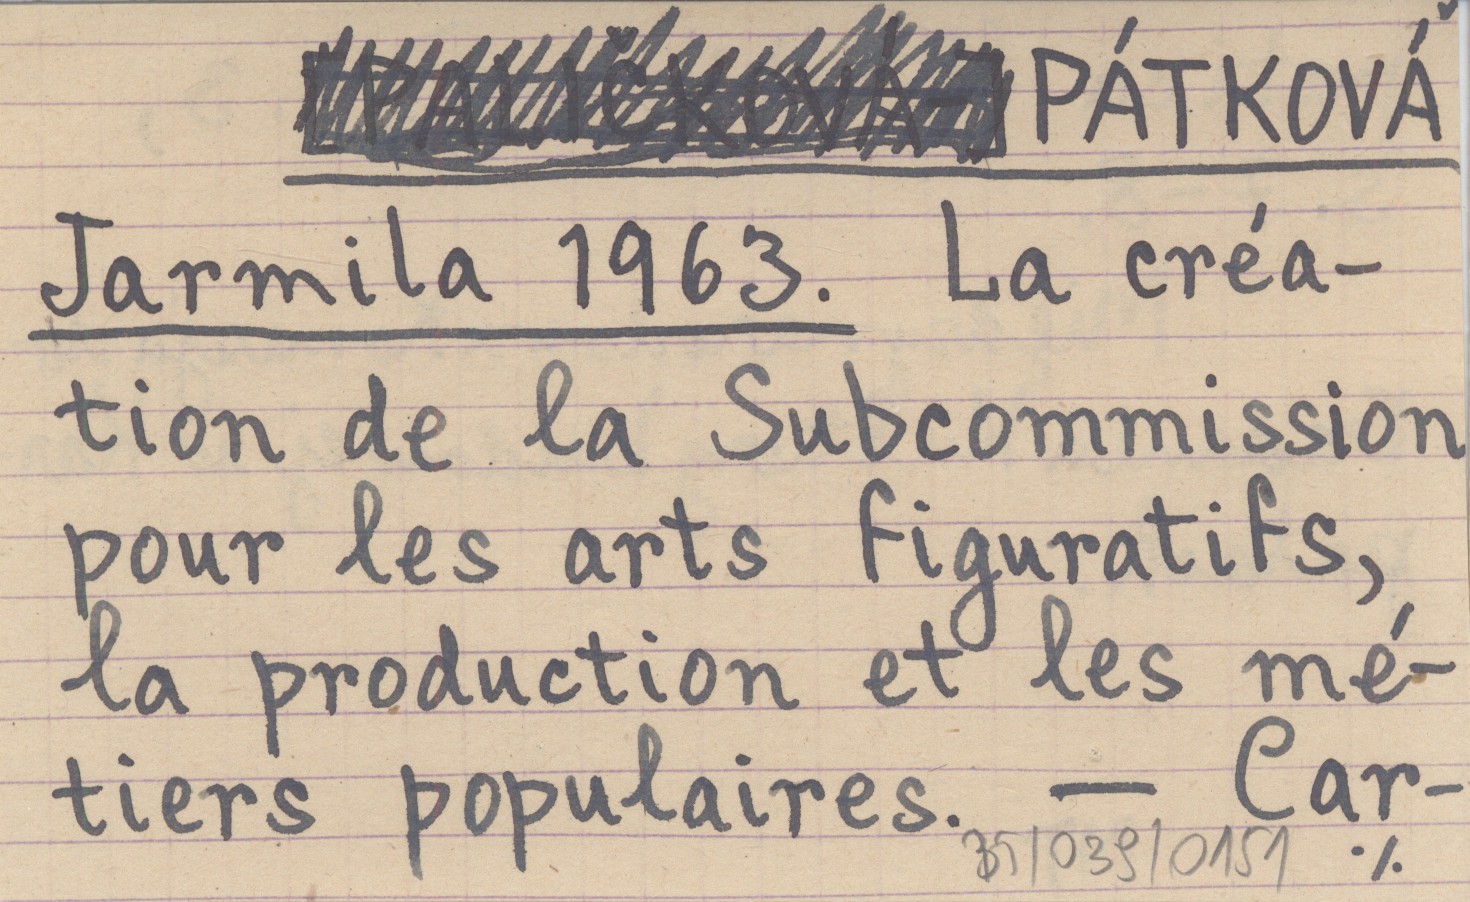 [PALIČKOVÁ-] PÁTKOVÁ
Jarmila 1963. La créa-
tion de la Subcommission
pour les arts figuratifs,
la production et les mé-
tiers populaires. — Car-
35/039/0151 ·/.